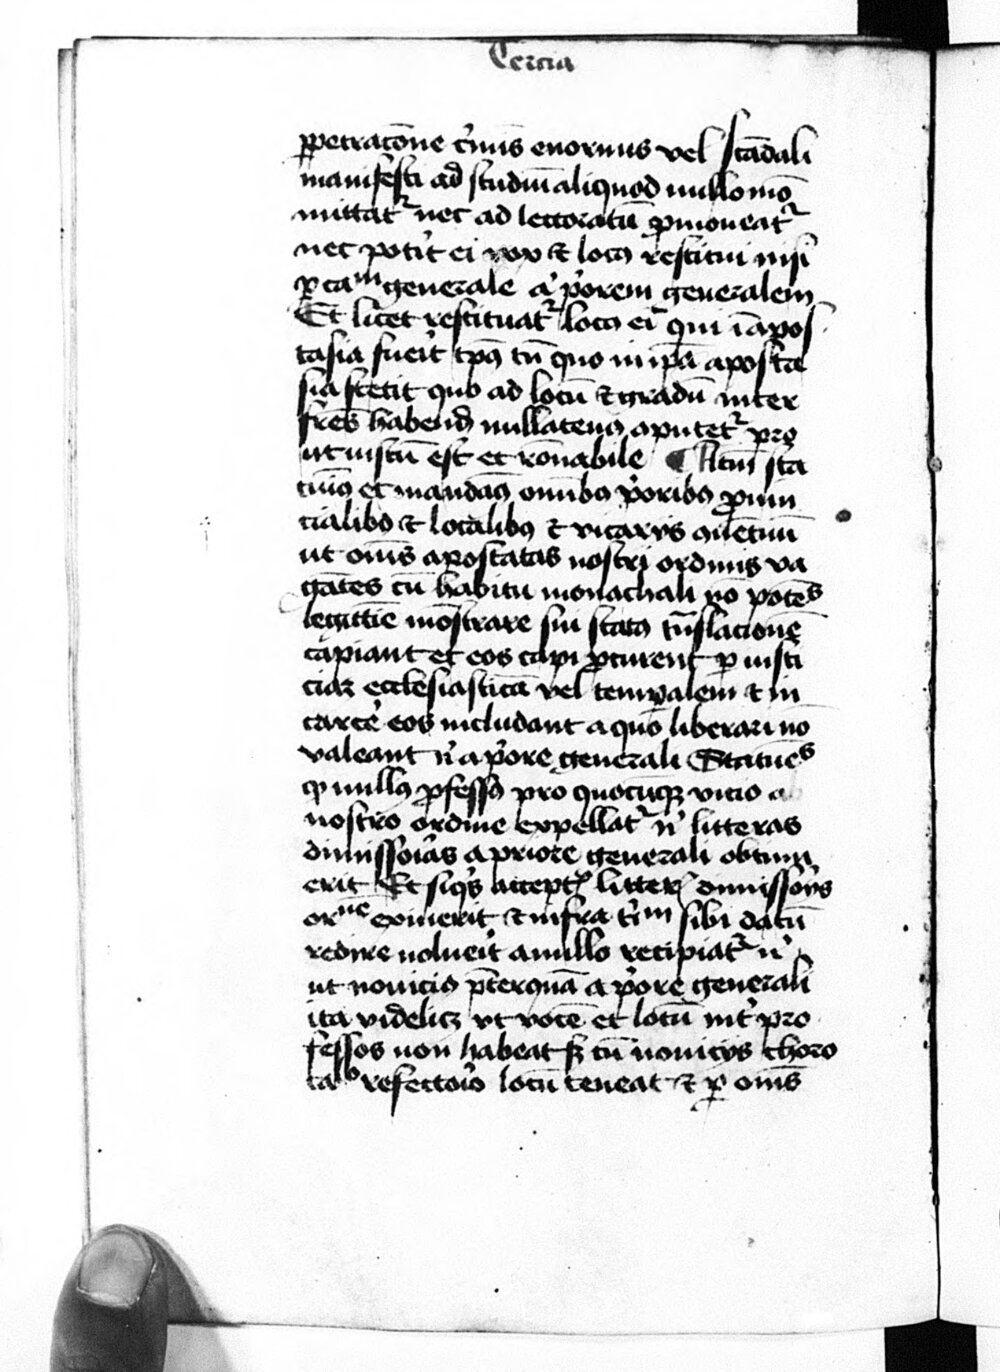 Tercia
ꝑpetracōne cͥmīs enormis vel scādali
manifesti ad studiū aliquod nullo mō
mittatᷣ nec ad lectoratū ꝓmoueatᷣ
nec pot̓it ei vox ⁊ locꝰ restitui nisi
ꝑ caᵐ generale aͭ pͥorem generalem
Et licet restituatᷣ locꝰ ei qui ī apos
tasia fueīt tp̄s tn̄ quo in ip̄a aposta
sia stetit quo ad locū ⁊ gradū inter
fr̄es habend̄ nullatenꝰ aputetᷣ pro
ut iustū est et rōnabile ¶ Itm̄ sta
tuimꝰ et mandamꝰ om̄ibꝰ pͥoribꝰ ꝓuin
cialibꝰ ⁊ localibꝰ ⁊ vicarijs quētuū
ut om̄s apostatas nostri ordinis va
gātes cū habitu monachali nō potēˢ
legittīe mōstrare sui statꝰ trāslacionē
capiant et eos capi ꝓcurent ꝑ iusti
ciaꝫ ecclesiasticā vel temꝑalem ⁊ in
carc̓e eos includant a quo liberari nō
valeant nͥ a pͥore generali Statuēˢ
ꝙ nullꝰ ꝓfessꝰ pro quocūqꝫ vicio a
nostro ordine expellatᷣ nͥ litteras
dimissoīas a priore generali obtinu
erit Et siqͥs acceptꝭ litterꝭ dimissorijs
orⁿᵉ exiuerit ⁊ infra tīᵐ sibi datū
redire noluerit a nullo recipiatᷣ nͥ
ut nouiciꝰ p̄terquā a pͥore generali
ita videlicꝫ vt vocē et locū int̓ pro
fessos non habeat sꝫ cū nouicijs choro
caᵖ refectoͥo locū teneat ⁊ ꝑ om̄s